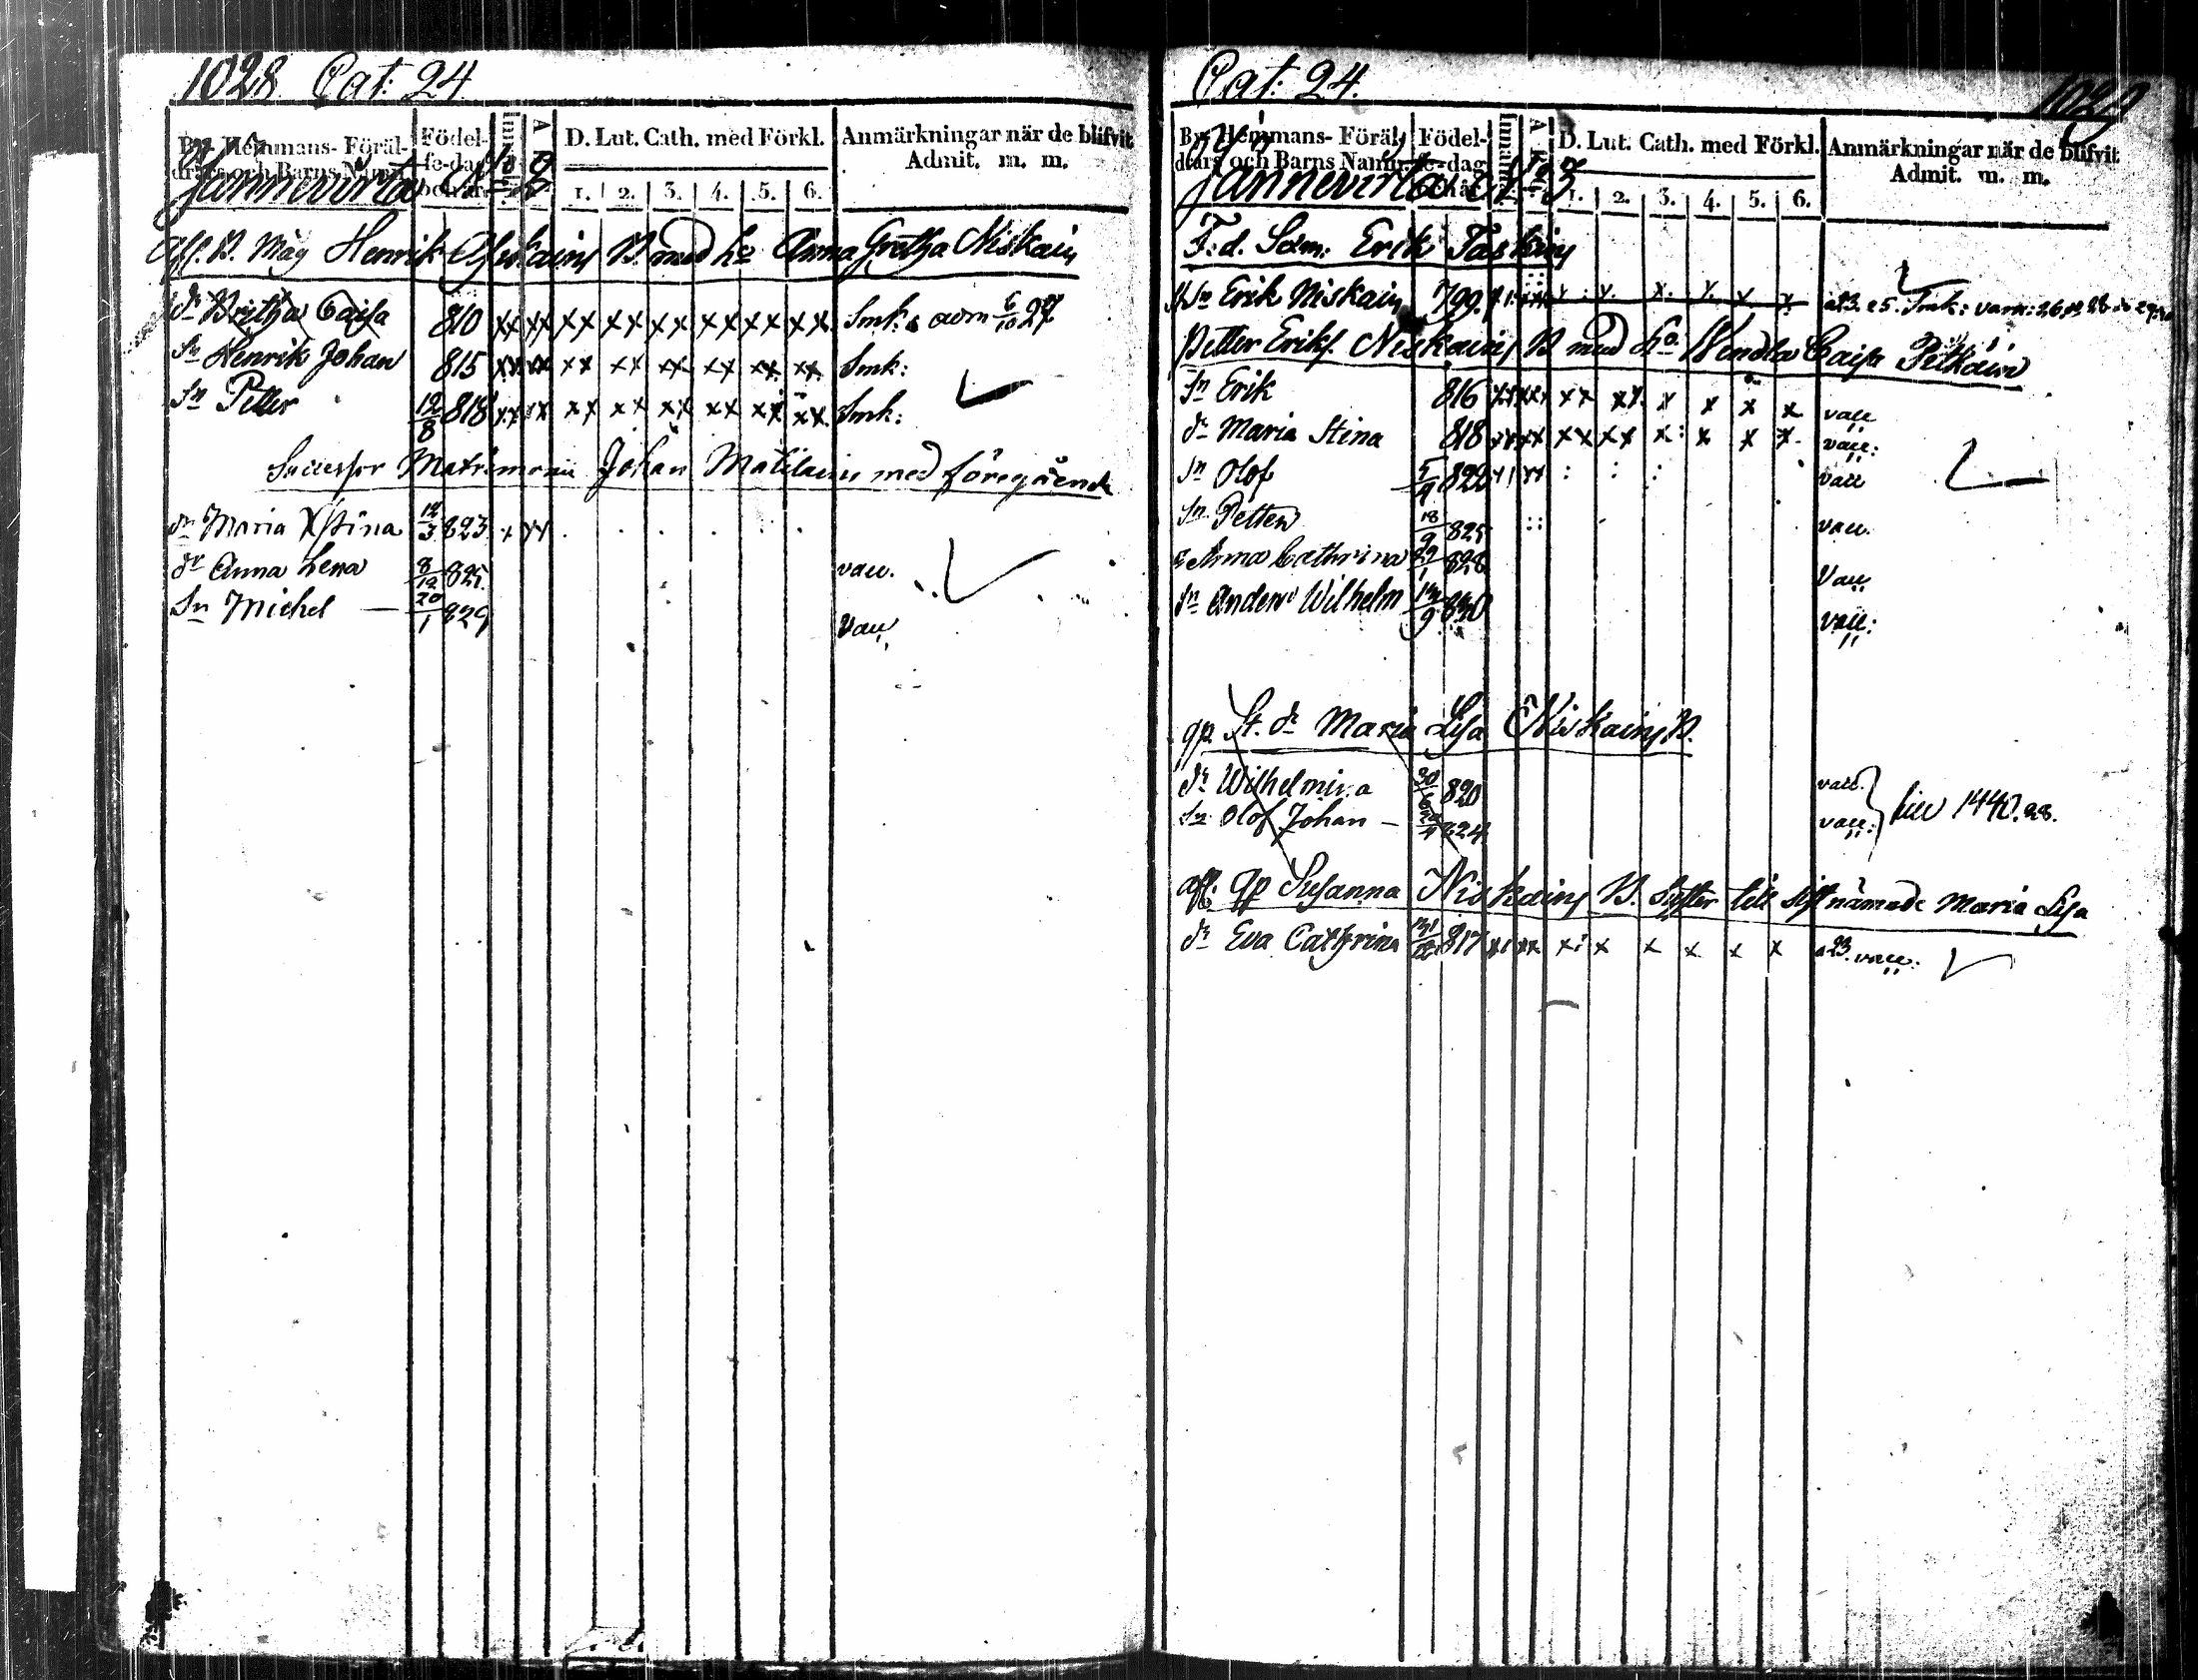 1028 Cat: 24
By- Hemmans- Föräldrars och Barns Namn
Födelse-dag och år
D. Lut. Cath. med Förkl.
1. 2. 3. 4. 5. 6.
Anmärkningar när de blifvit Admit. m. m.
Jännevirta
afl. B. Måg Henrik B. med ha Anna Gretha Niskain
dr Britha Caisa 810 xx xx xx xx xx xx xx xx Smk: adm 6/10 27
Sn Henrik Johan 815 xx xx xx xx xx xx xx xx Smk:
Sn Petter 12/8 818 xx xx xx xx xx xx xx xx Smk:
Successor Matrimonii Johan Matilain med föregående
dr Maria Xstina 12/3 823 x xx
dr Anna Lena 8/12 825 vacc.
Sn Michel 20/1 829 Vacc
Cat: 24. 1029
By- Hemmans- Föräldrars och Barns Namn
Födelse-dag och år
D. Lut. Cath. med Förkl.
1. 2. 3. 4. 5. 6.
Anmärkningar när de blifvit Admit. m. m.
Jännevirta
F: d. Sold: Erik Taskin
Sn Erik Niskain 799. x. x. x. x. x. x.
Petter Eriks. Niskains B med ha Wendla Caisa Pitkäin
Sn Erik 816 xx xx xx xx x x x x vacc
dr Maria Stina 818 xx xx xx xx x x x x vacc:
Sn Olof 5/4 822 vacc
Sn Petter 18/9 825 vacc.
Anna Cathrina 29/1 828 Vacc
Sn Anders Wilhelm 13/9 830 vacc:
qp. St. dr Maria Lisa Niskains B.
dr Wilhelmina 30/6 820 vacc.
Sn Olof Johan 824 vacc:
1440. 28.
afl. qp Susanna Niskains B. Syster till sistnämnde Maria Lisa
dr Eva Cathrina 817 x x x x x x a 23. vacc: